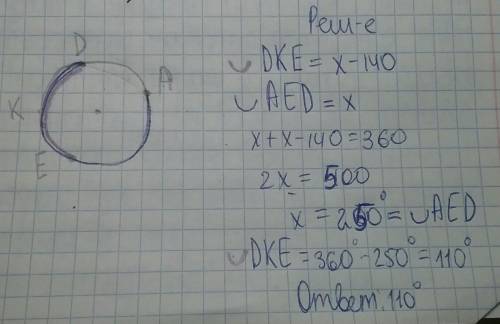 Реш-е
D
A
K
E
◡DKE = x-140
◡AED = x
x+x-140=360
2x = 500
x = 250° = ◡AED
◡DKE = 360° - 250° = 110°
Ответ: 110°